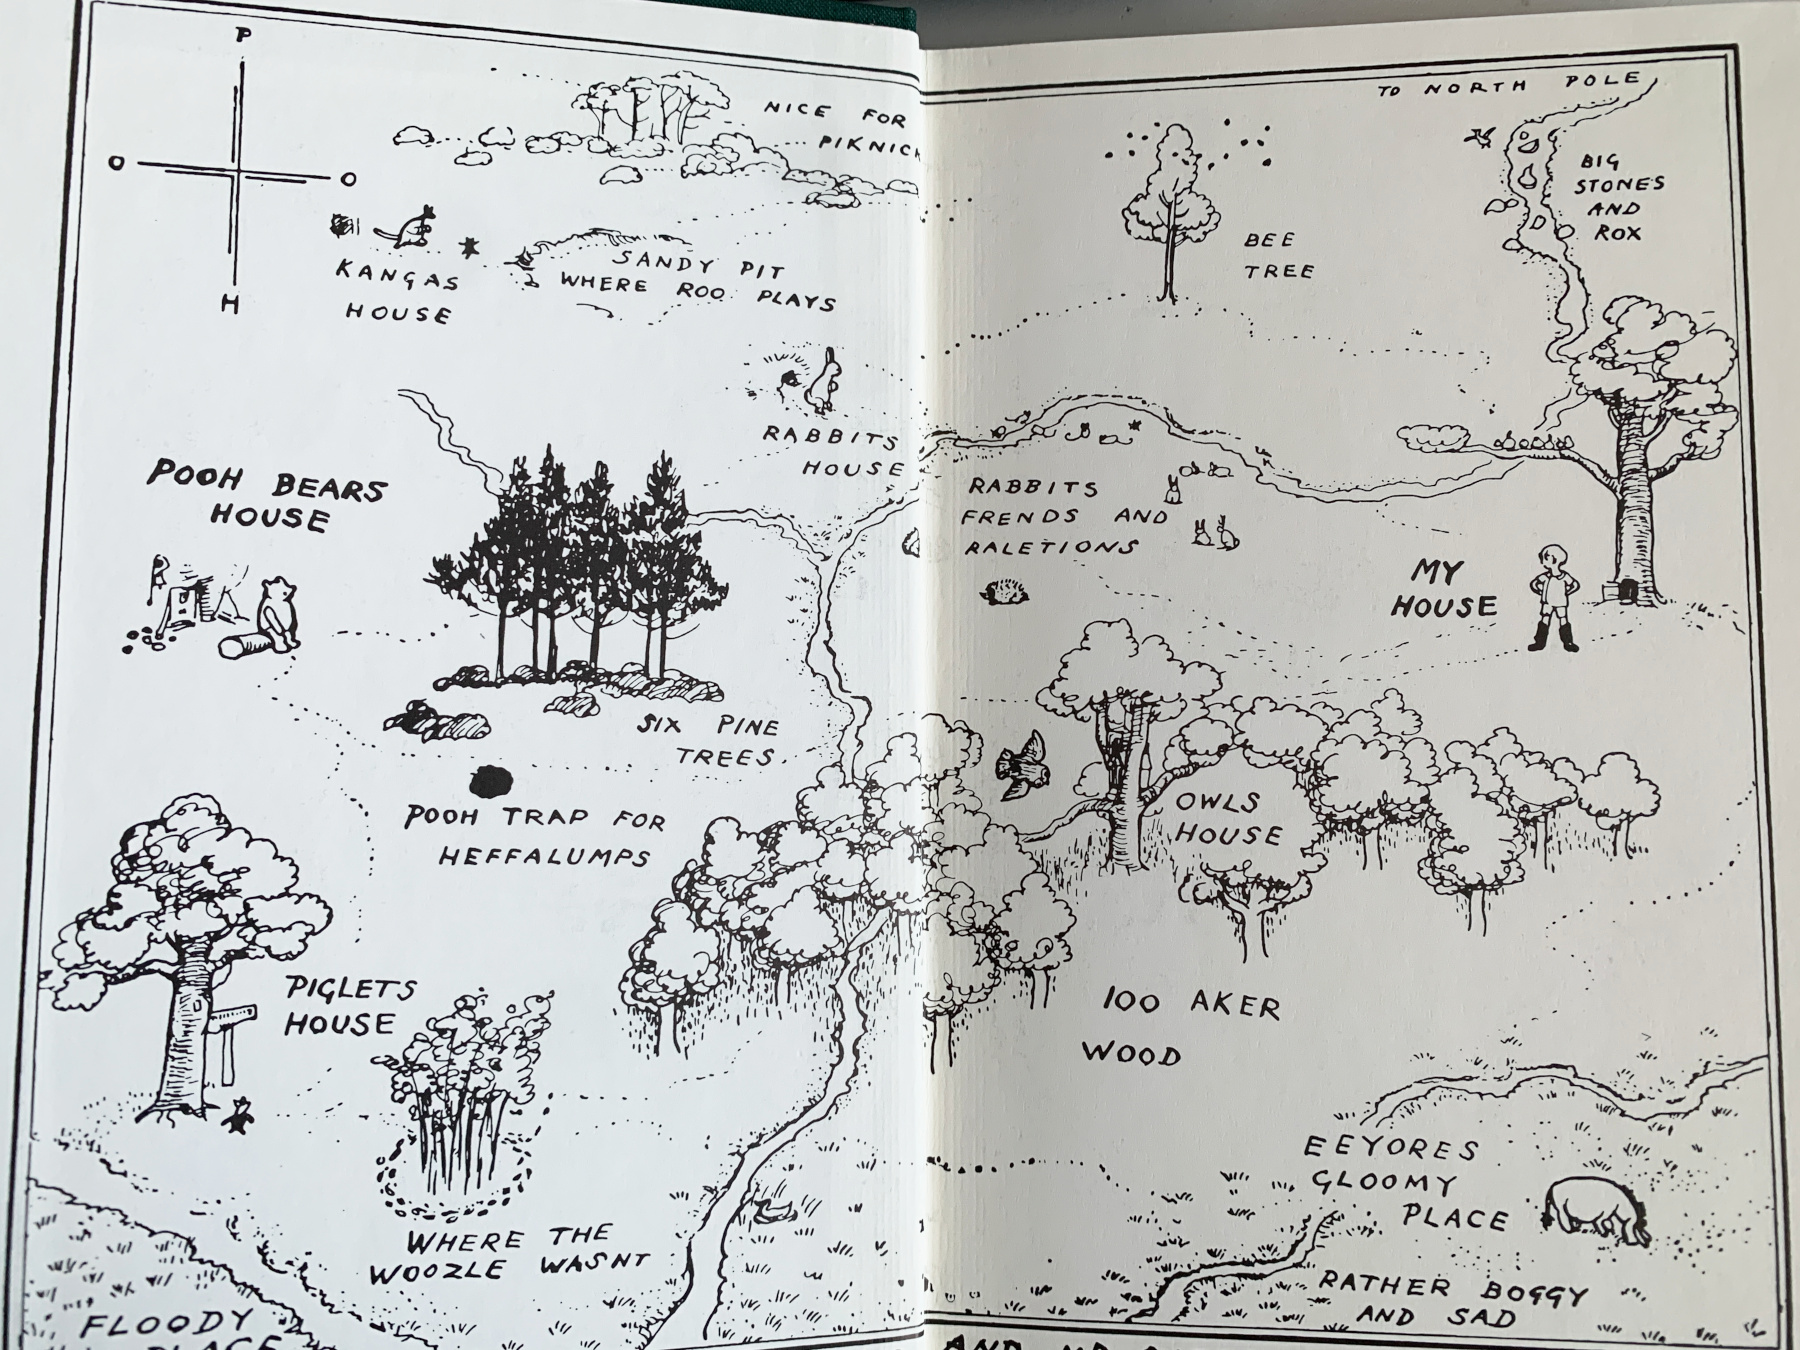 P
O
O
H
NICE FOR
PIKNICK
TO NORTH POLE
BIG
STONES
AND
ROX
BEE
TREE
KANGAS
HOUSE
SANDY PIT
WHERE ROO PLAYS
RABBITS
HOUSE
POOH BEARS
HOUSE
RABBITS
FRENDS AND
RALETIONS
MY
HOUSE
SIX PINE
TREES
POOH TRAP FOR
HEFFALUMPS
OWLS
HOUSE
PIGLETS
HOUSE
100 AKER
WOOD
WHERE THE
WOOZLE WASNT
EEYORES
GLOOMY
PLACE
RATHER BOGGY
AND SAD
FLOODY
PLACE
AND